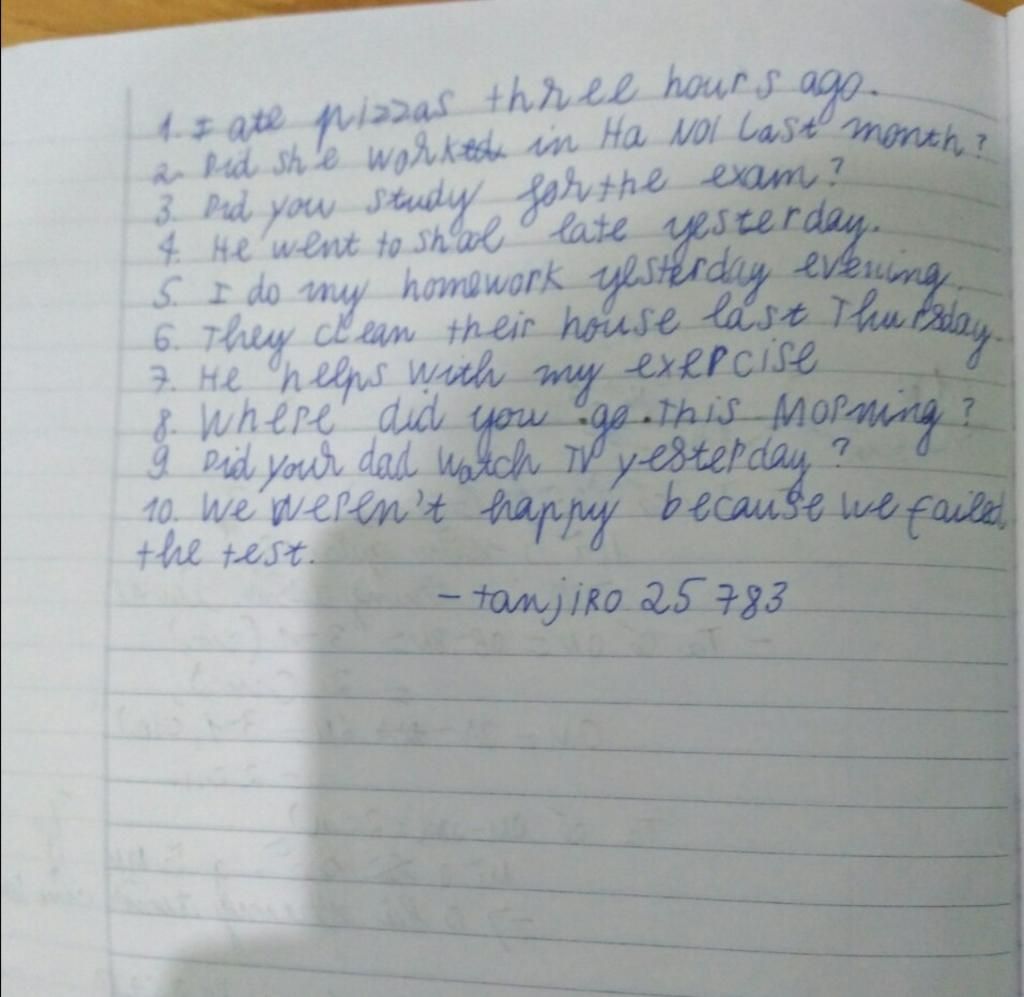 1. I ate pizzas three hours ago.
2. Did she work in Ha Noi last month?
3. Did you study for the exam?
4. He went to shool late yesterday.
5. I do my homework yesterday evening.
6. They clean their house last Thursday.
7. He helps with my exercise
8. Where did you go this Morning?
9 Did your dad watch TV yesterday?
10. We weren't happy because we failed
the test.
- tanjiro 25 783